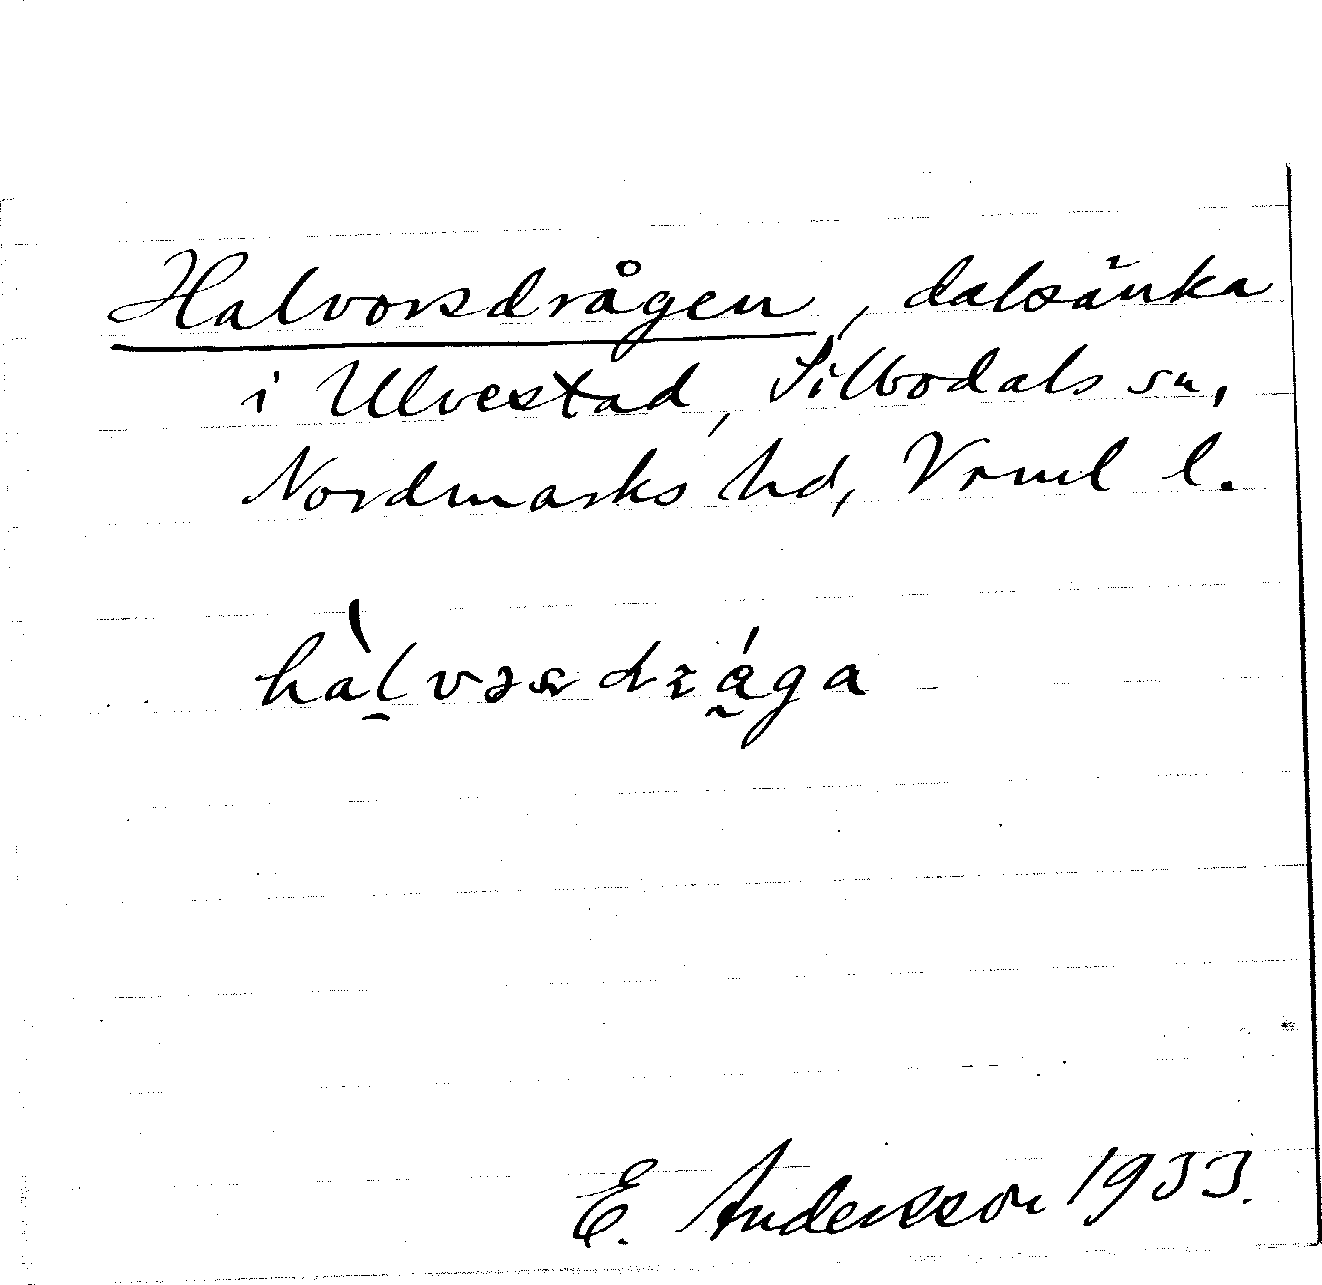 Halvorsdrågen, dalsänka
i Ulvestad, Silbodals sn,
Nordmarks hd, Vrml l.
E. Andersson 1933.